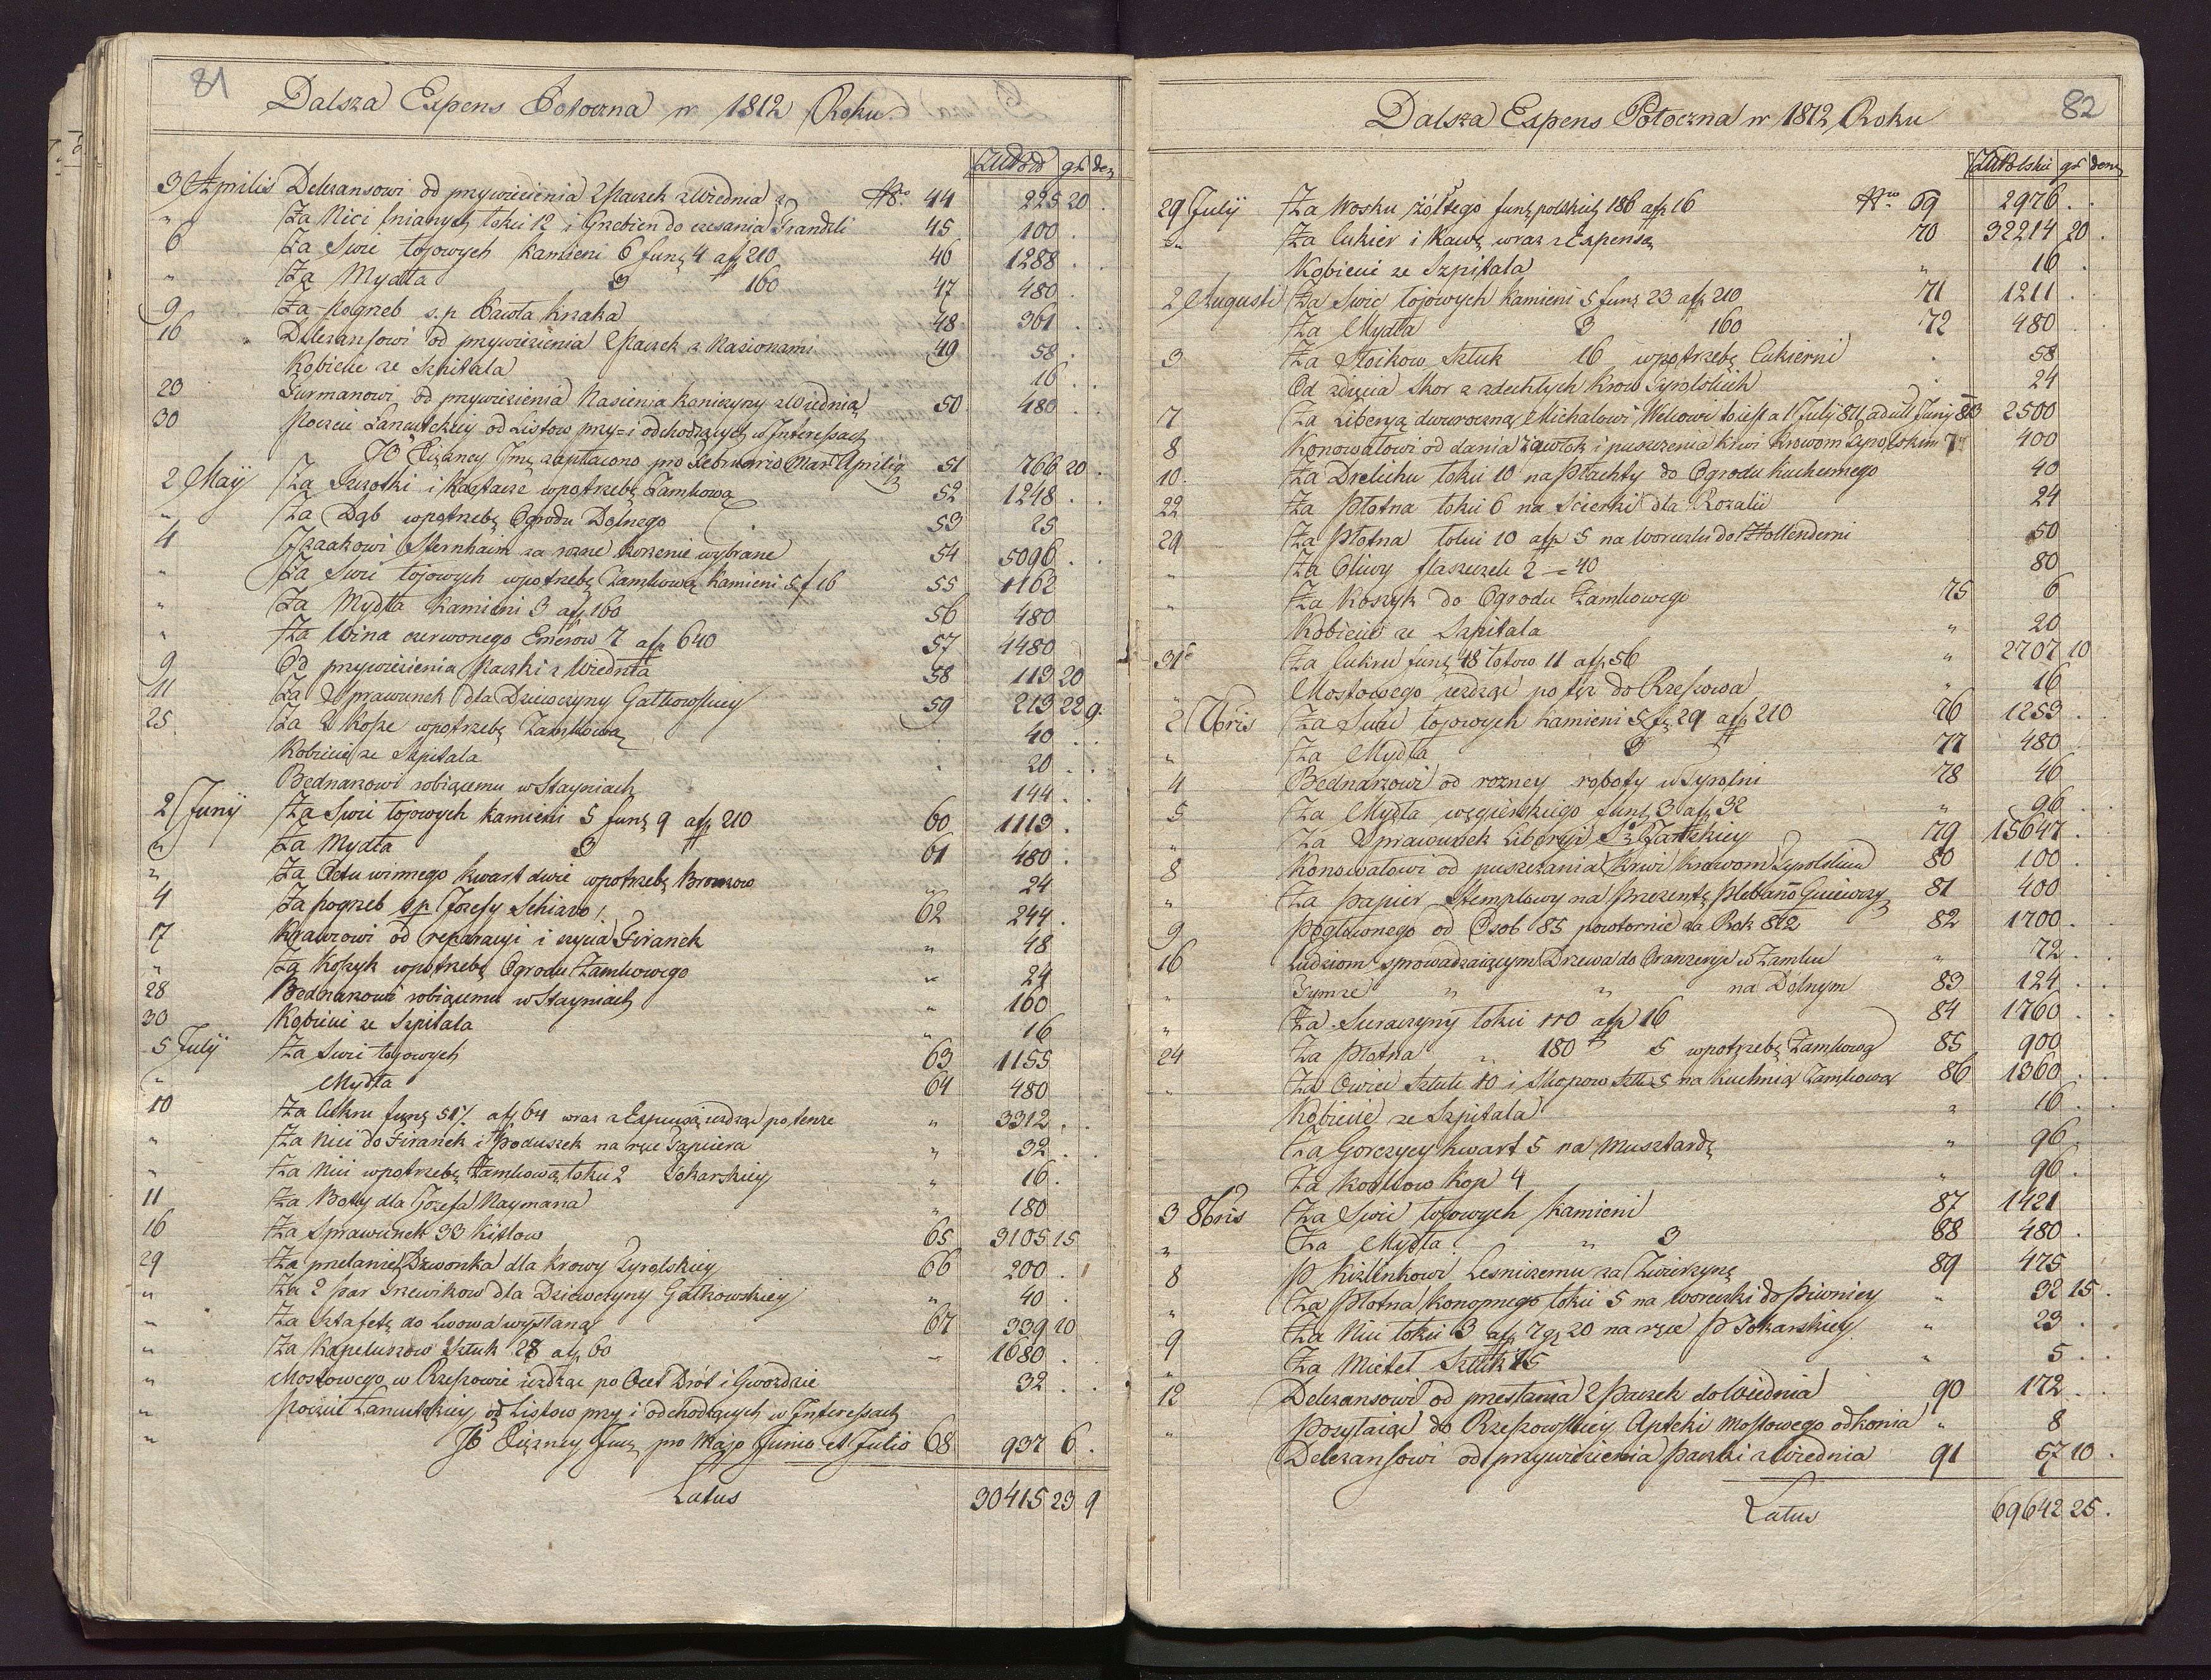 81
Dalsza Expens Potoczna w 1812 Roku
gr den
3 Aprilis Deleżansowi od przywiezienia 2 Paczek z Wiednia No 44 225 20
" Za Nici lnianych łokci 12 i Grzebień do czesania Frandzli 45 100
6 Za Swic łojowych Kamieni 6 fung 4 afp 210 46 1288
" Za Mydła 3 160 47 480
9 Za pogrzeb s.p Pawła Knaka 48 361
16 Deleżansowi od przywiezienia 2 Paczek z Nasionami 49 58
Kobiecie ze Szpitala 16
23 Furmanowi od przywiezienia Nasienia Koniczyny z Wiednia 50 480
30 Poczcie Lancutckiey od Listow przy = i odchodzących w Interessach
JO Xiężney Jmę zapłacono pro Februario Mart Aprilis 51 766 20
2 Maij Za Szczotki i Kartacze wpotrzebę Zamkową 52 1248
" Za Dąb wpotrzebę Ogrodu Dolnego 53 25
4 Izaakowi Sternhaim za rozne korzenie wybrane 54 5096
" Za Swic łojowych wpotrzebę Zamkową Kamieni 5 f 16 55 1162
" Za Mydła Kamieni 3 afp 160 56 480
" Za Wina czerwonego Emerow 7 afp 640 57 4480
9 Od przywiezienia Paczki z Wiednia 58 113 20
11 Za Sprawunek dla Dziewczyny Gatkowskiey 59 213 22 9
25 Za 2 Kosze wpotrzebę Zamkową 40
Kobiecie ze Szpitala 20
Bednarzowi robiącemu w Stayniach 144
2 Junij Za Swic łojowych Kamieni 5 fung 9 afp 210 60 1113
" Za Mydła 3 61 480
" Za Octu winnego kwart dwie wpotrzebę Bronzow " 24
4 Za pogrzeb sp Jozefy Schiavo 62 244
17 Krawcowi od reparacyi i szycia Firanek " 48
" Za Koszyk wpotrzebę Ogrodu Zamkowego " 24
28 Bednarzowi robiącemu w Stayniach " 160
30 Kobiecie ze Szpitala " 16
5 Julij Za Swic łojowych 63 1155
" Mydła 64 480
10 Za Cukru fung 51 1/2 afp 64 wraz z Expensą jeżdząc po tenze " 3312
" Za Nici do Firanek i Poduszek na ręce Tapicera " 32
" Za Nici wpotrzebę Zamkową łokci 2 Tokarskiey " 16
11 Za Botty dla Jozefa Naymana " 180
16 Za Sprawunek 33 Kitlow 65 3105 15
29 Za przelanie Dzwonka dla krowy Tyrolskiey 66 200
" Za 2 par Trzewikow dla Dziewczyny Gatkowskiey " 40
" Za Sztafetę do Lwowa wysłaną 67 339 10
" Za Kapeluszow Sztuk 28 afp 60 - 1680
" Mostowego w Rzeszowie jeżdząc po Ocet Drót i Gwoździe 32
" Poczcie Lancutckiey od Listow przy i odchodzących w Interessach
" JO Xiężney Jmę pro Majo Junio et Julio 68 937 6
Latus 30415 23 9
82
Dalsza Expens Potoczna w 1812 Roku
Zł Polskie gr den
29 Julij Za Wosku żółtego fung polskich 186 afp 16 No 69 2976
" Za Cukier i Kawę wraz z Expensą 70 32214 20
Kobiecie ze Szpitala " 16
2 Augusti Za Swic łojowych Kamieni 5 fung 23 afp 210 71 1211
Za Mydła 3 160 72 480
3 Za Słoikow Sztuk 16 wpotrzebę Cukierni 58
Od zdjęcia Skor z zdechłych Krow Tyrolskich 24
7 Za Liberyą dwuroczną Michałowi Welcowi to iest a 1 July 811 ad ult Junij 813 2500
8 Konowałowi od dania zawłok i puszczenia krwi Krowom Tyrolskim 7 400
10 Za Drelichu łokci 10 na Płachty do Ogrodu Kuchennego 40
22 Za Płotna łokci 6 na Scierki dla Rozalii 24
29 Za Płotna łokci 10 afp 5 na Woreczki do Hollenderni 50
" Za Oliwy flaszeczek 2 = 40 80
" Za Koszyk do Ogrodu Zamkowego 75 6
Kobiecie ze Szpitala " 20
31 Za Cukru fung 48 łotow 11 afp 56 " 2707 10
" Mostowego jeżdząc po tęż do Rzeszowa " 16
2 7bris Za Swic łojowych Kamieni 5 fg 29 afp 210 76 1253
" Za Mydła 3 77 480
4 Bednarzowi od rozney roboty w Tyrolni 78 46
5 Za Mydła węgierskiego fung 3 afp 32 " 96
" Za Sprawunek Liberyi 79 15647
8 Konowałowi od puszczania Krwi Krowom Tyrolskim 80 100
" Za papier Stemplowy na Prezentę Plebano Gniewczy 81 400
9 Pogłownego od Osob 85 powtornie za Rok 812 82 1700
16 Ludziom sprowadzaiącym Drzewa do Oranżeryi w Zamku " 72
" Tymże " " na Dolnym 83 124
" Za Sieraczyny łokci 110 afp 16 84 1760
24 Za Płotna " 180 5 wpotrzebę Zamkową 85 900
" Za Owiec Sztuk 10 i Skopow Sztuk 5 na Kuchnią Zamkową 86 1360
Kobiecie ze Szpitala " 16
Za Gorczycy kwart 5 na Musztardę " 96
Za Kop 4 " 96
3 8bris Za Swic łojowych Kamieni 87 1421
" Za Mydła " 3 88 480
8 P Kizlinkowi Lesniczemu za Zwierzynę 89 475
" Za Płotna konopnego łokci 5 na woreczki do Piwnicy " 32 15
9 Za Nici łokci 3 afp 7 g 20 na ręce P Tokarskiey " 23
" Za Mietel Sztuk 15 " 5
12 Deleżansowi od przesłania 2 Paczek do Wiednia 90 172
" Posyłaiąc do Rzeszowskiey Apteki Mostowego od konia " 8
Deleżansowi od przywiezienia Paczki z Wiednia 91 57 10
Latus 69642 25